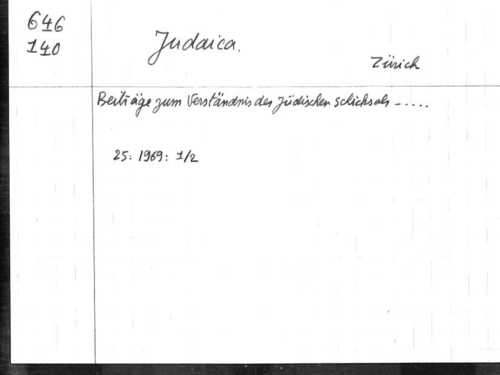 646
140
Judaica.
Zürich
Beiträge zum Verständnis des jüdischen schicksals -.....
25: 1969: 1/2